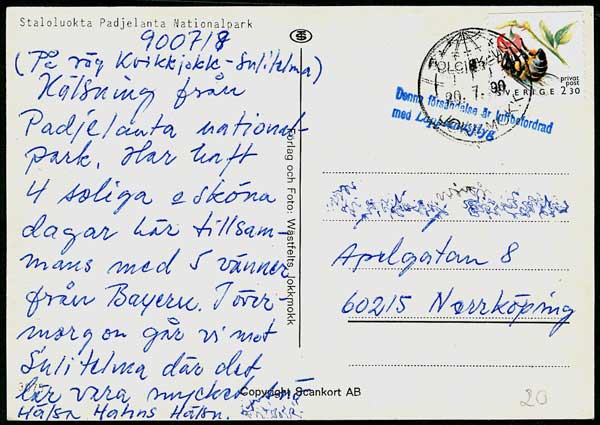 Staloluokta Padjelanta Nationalpark
900718
(På väg Kvikkjokk-Sulitelma)
Hälsning från
Padjelanta national-
park. Har haft
4 soliga o sköna
dagar här tillsam-
mans med 5 vänner
från Bayern. I över-
morgon går vi mot
Sulitelma där det
lär vara mycket
Hälsn.
Förlag och Foto: Wästfelts, Jokkmokk
Copyright Scankort AB
20.7.90
JOKKMOKK
privat
post
SVERIGE 2.30
Denna försändelse är luftbefordrad
med Lapplandsflyg
Apelgatan 8
60215 Norrköping
20